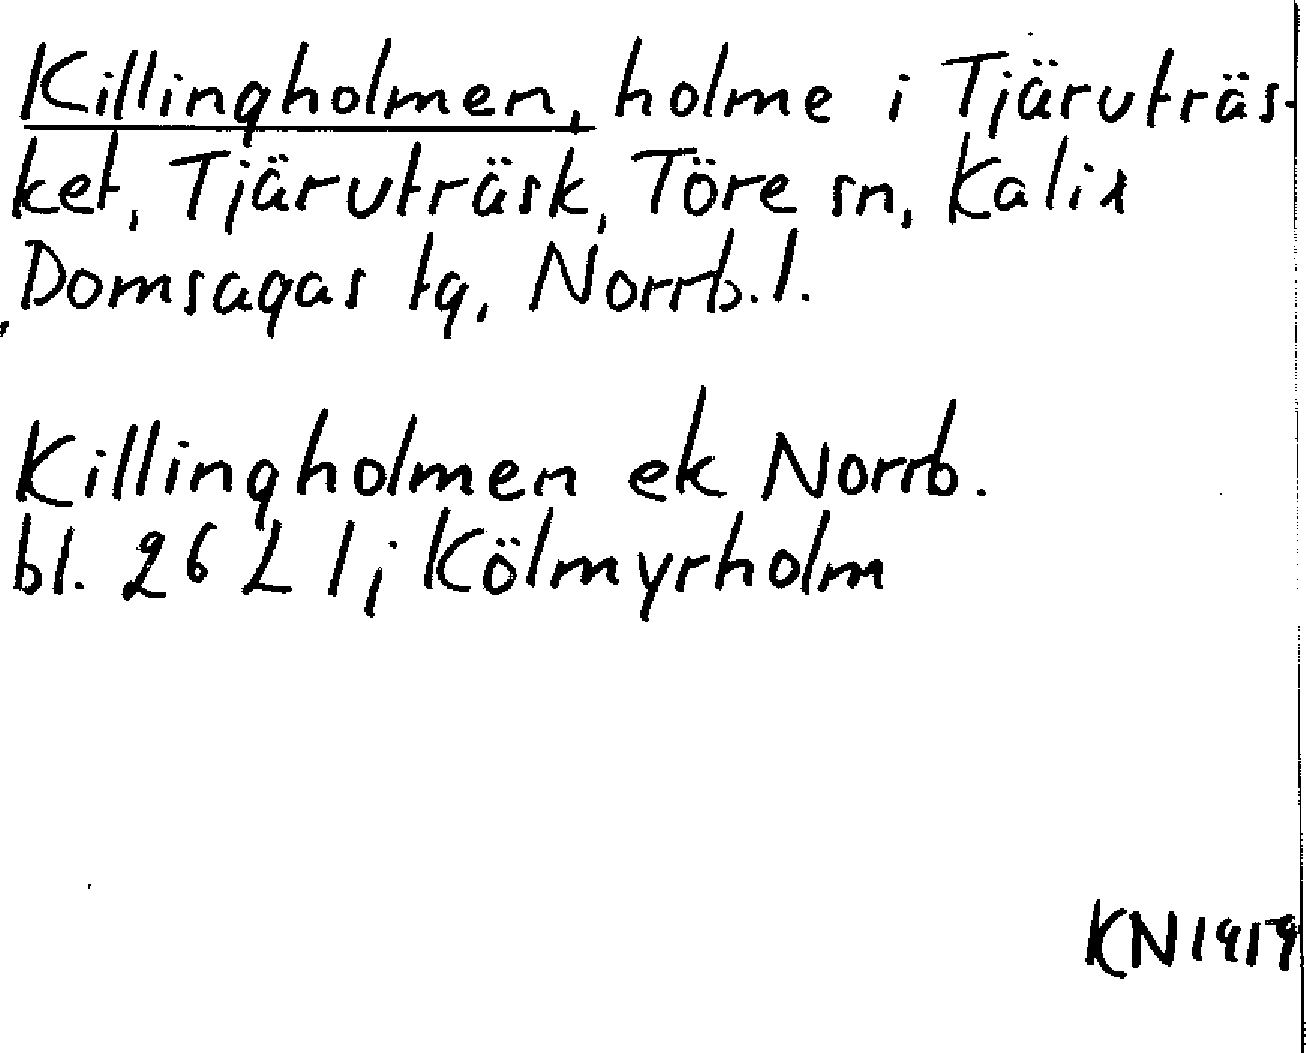 Killingholmen, holme i Tjäruträs-
ket, Tjäruträsk, Töre sn, Kalix
Domsagas tg, Norrb. l.
Killingholmen ek Norrb.
bl. 26 L 1; Kölmyrholm
KN 1919